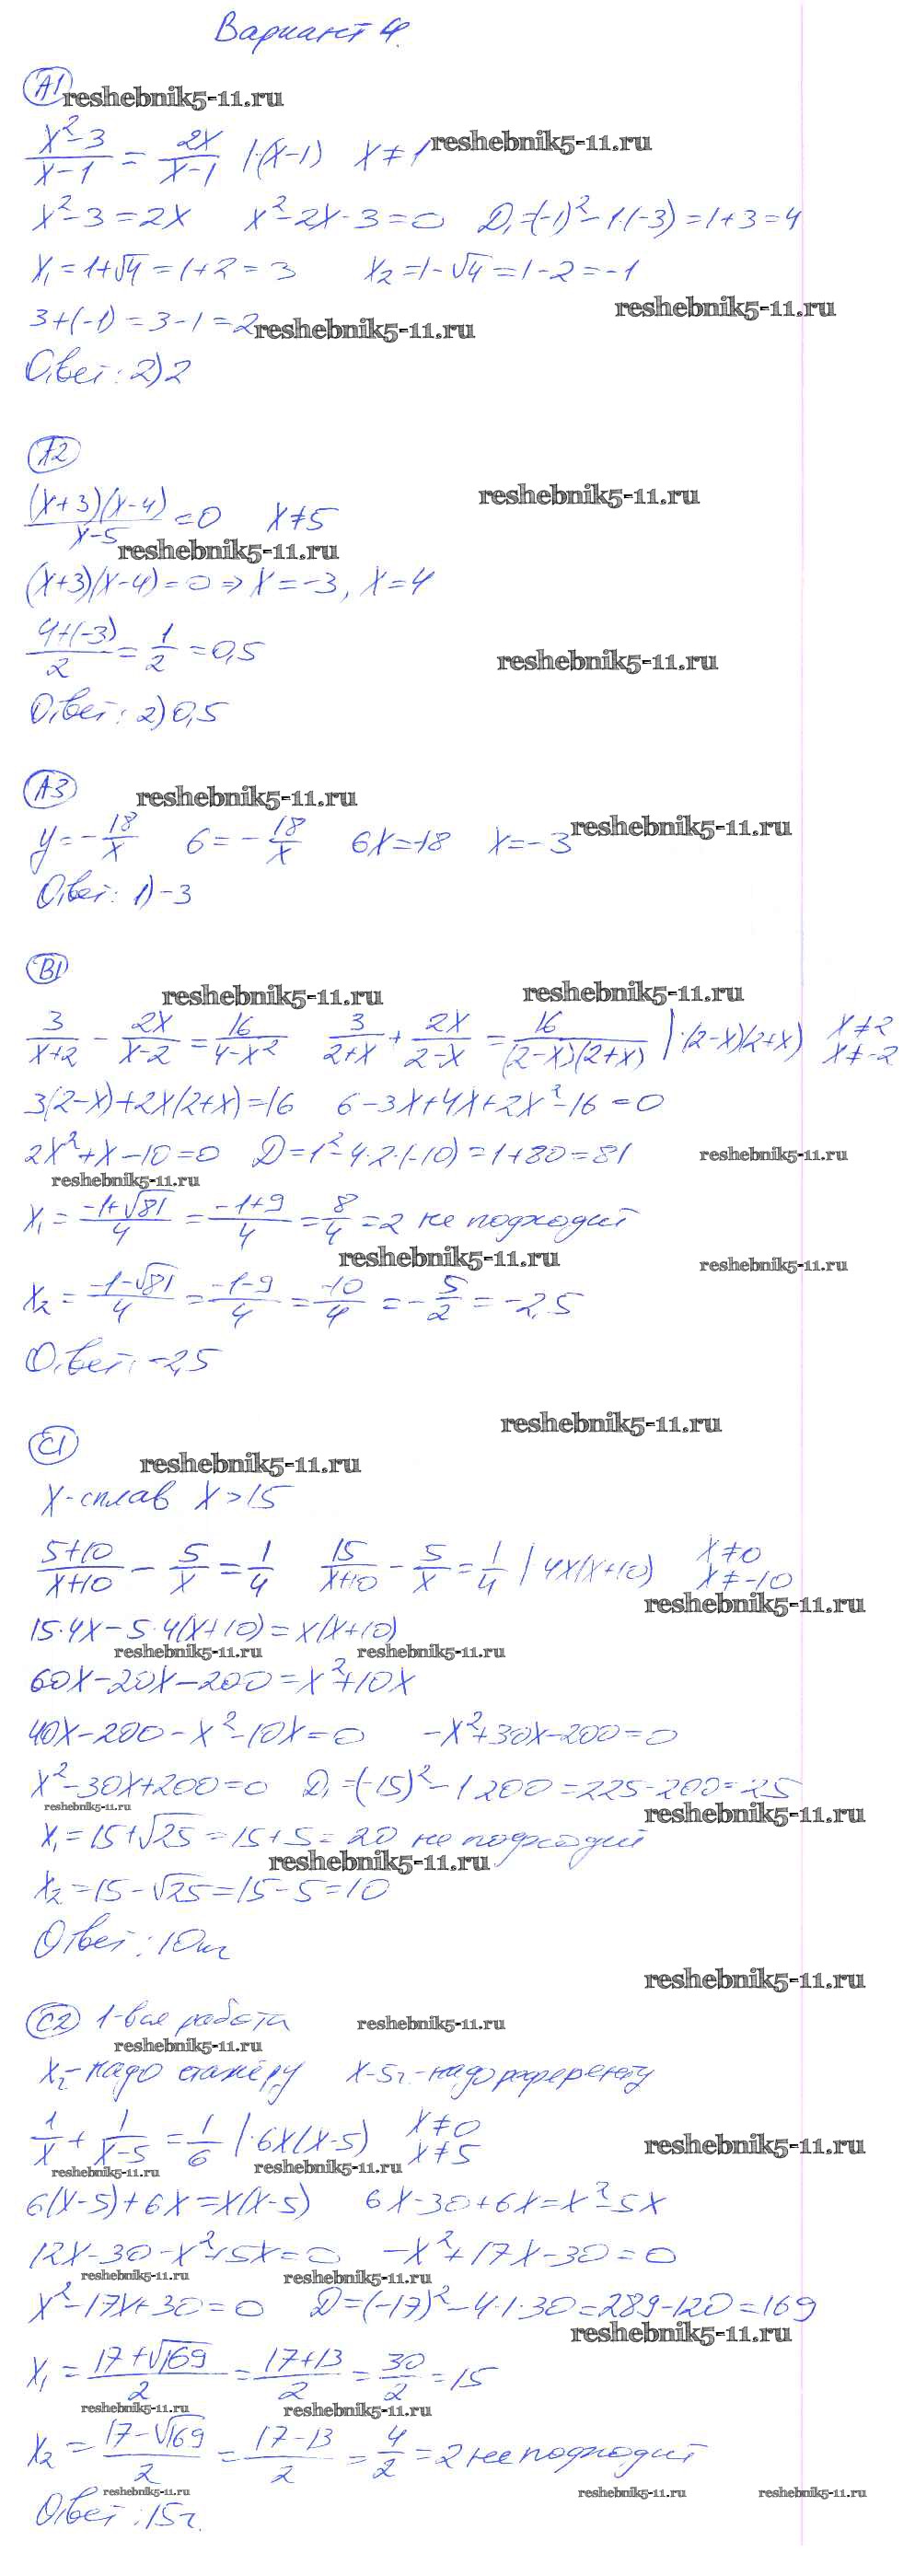 Вариант 4.
А1 reshebnik5-11.ru
(x²-3)/(x-1) = 2x/(x-1) |·(x-1) x≠1 reshebnik5-11.ru
x²-3=2x x²-2x-3=0 D₁=(-1)²-1·(-3)=1+3=4
x₁=1+√4=1+2=3 x₂=1-√4=1-2=-1
reshebnik5-11.ru
3+(-1)=3-1=2 reshebnik5-11.ru
Ответ: 2) 2
А2
reshebnik5-11.ru
((x+3)(x-4))/(x-5) = 0 x≠5
reshebnik5-11.ru
(x+3)(x-4)=0 ⇒ x=-3, x=4
(4+(-3))/2 = 1/2 = 0,5
reshebnik5-11.ru
Ответ: 2) 0,5
А3 reshebnik5-11.ru
y=-18/x 6=-18/x 6x=-18 x=-3 reshebnik5-11.ru
Ответ: 1) -3
В1
reshebnik5-11.ru reshebnik5-11.ru
3/(x+2) - 2x/(x-2) = 16/(4-x²) 3/(2+x) + 2x/(2-x) = 16/((2-x)(2+x)) |·(2-x)(2+x) x≠2 x≠-2
3(2-x)+2x(2+x)=16 6-3x+4x+2x²-16=0
2x²+x-10=0 D=1²-4·2·(-10)=1+80=81 reshebnik5-11.ru
reshebnik5-11.ru
x₁=(-1+√81)/4 = (-1+9)/4 = 8/4 = 2 не подходит
reshebnik5-11.ru reshebnik5-11.ru
x₂=(-1-√81)/4 = (-1-9)/4 = -10/4 = -5/2 = -2,5
Ответ: -2,5
reshebnik5-11.ru
С1
reshebnik5-11.ru
x-сплав x>15
(5+10)/(x+10) - 5/x = 1/4 15/(x+10) - 5/x = 1/4 | 4x(x+10) x≠0 x≠-10
reshebnik5-11.ru
15·4x-5·4(x+10)=x(x+10)
reshebnik5-11.ru reshebnik5-11.ru
60x-20x-200=x²+10x
40x-200-x²-10x=0 -x²+30x-200=0
x²-30x+200=0 D₁=(-15)²-1·200=225-200=25
reshebnik5-11.ru reshebnik5-11.ru
x₁=15+√25=15+5=20 не подходит
reshebnik5-11.ru
x₂=15-√25=15-5=10
Ответ: 10 кг
reshebnik5-11.ru
С2 1-вся работа reshebnik5-11.ru
reshebnik5-11.ru
x ч-надо стажёру x-5ч-надо референту
1/x + 1/(x-5) = 1/6 |·6x(x-5) x≠0 x≠5 reshebnik5-11.ru
reshebnik5-11.ru reshebnik5-11.ru
6(x-5)+6x=x(x-5) 6x-30+6x=x²-5x
12x-30-x²+5x=0 -x²+17x-30=0
reshebnik5-11.ru reshebnik5-11.ru
x²-17x+30=0 D=(-17)²-4·1·30=289-120=169
reshebnik5-11.ru
x₁=(17+√169)/2 = (17+13)/2 = 30/2 = 15
reshebnik5-11.ru reshebnik5-11.ru
x₂=(17-√169)/2 = (17-13)/2 = 4/2 = 2 не подходит
reshebnik5-11.ru reshebnik5-11.ru reshebnik5-11.ru
Ответ: 15ч.